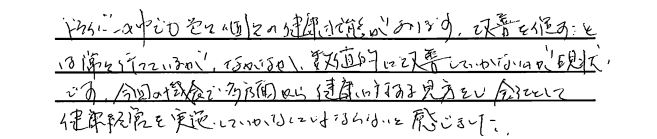 ドライバーの中でもやはり個々の健康状態があります。改善を促すこと
は常に行っているが、なかなか、数値的に改善していかないのが現状
です。今回の機会で多方面から健康に対する見方をし会社として
健康経営を実施していかなくてはならないと感じました。